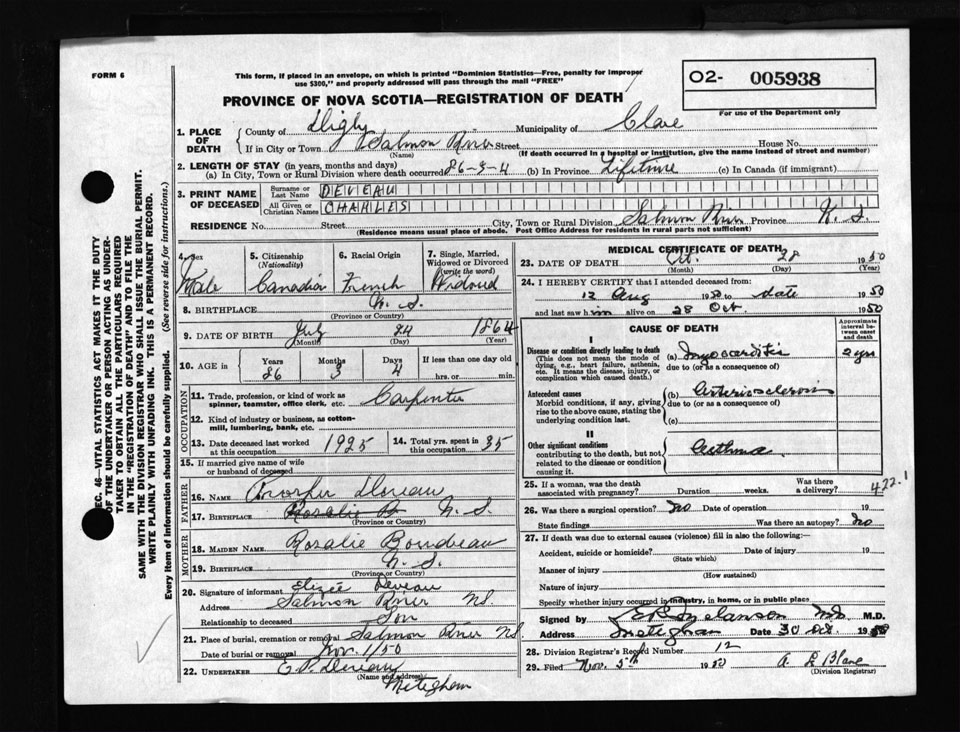 FORM 6
This form, if placed in an envelope, on which is printed "Dominion Statistics—Free, penalty for improper
use $300," and properly addressed will pass through the mail "FREE"
O2- 005938
For use of the Department only
PROVINCE OF NOVA SCOTIA—REGISTRATION OF DEATH
1. PLACE OF DEATH { County of Digby Municipality of Clare
If in City or Town Salmon River Street House No.
(Name) (If death occurred in a hospital or institution, give the name instead of street and number)
2. LENGTH OF STAY (in years, months and days)
(a) In City, Town or Rural Division where death occurred 86-3-4 (b) In Province Lifetime (c) In Canada (if immigrant)
3. PRINT NAME OF DECEASED { Surname or Last Name DEVEAU
All Given or Christian Names CHARLES
RESIDENCE No. Street City, Town or Rural Division Salmon River Province N. S.
(Residence means usual place of abode. Post Office Address for residents in rural parts not sufficient)
4. Sex Male
5. Citizenship (Nationality) Canadian
6. Racial Origin French
7. Single, Married, Widowed or Divorced (write the word) Widowed
8. BIRTHPLACE N. S.
(Province or Country)
9. DATE OF BIRTH July 24 1864
(Month) (Day) (Year)
10. AGE in Years 86 Months 3 Days 4 If less than one day old hrs. or min.
OCCUPATION
11. Trade, profession, or kind of work as spinner, teamster, office clerk, etc. Carpenter
12. Kind of industry or business, as cotton-mill, lumbering, bank, etc.
13. Date deceased last worked at this occupation 1925 14. Total yrs. spent in this occupation 35
15. If married give name of wife or husband of deceased
FATHER
16. NAME Deveau
17. BIRTHPLACE Rosalie B N. S.
(Province or Country)
MOTHER
18. MAIDEN NAME Rosalie Boudreau
19. BIRTHPLACE N. S.
(Province or Country)
20. Signature of informant Elizée Deveau
Address Salmon River NS.
Relationship to deceased Son
21. Place of burial, cremation or removal Salmon River NS
Date of burial or removal Nov. 1/50
22. UNDERTAKER E. P. Deveau
(Name and Address)
Meteghan
MEDICAL CERTIFICATE OF DEATH
23. DATE OF DEATH Oct. 28 1950
(Month) (Day) (Year)
24. I HEREBY CERTIFY that I attended deceased from:
12 Aug 1950 to date 1950
and last saw him alive on 28 Oct 1950
CAUSE OF DEATH
Approximate interval between onset and death
I
Disease or condition directly leading to death
(This does not mean the mode of dying, e.g., heart failure, asthenia, etc. It means the disease, injury, or complication which caused death.)
(a) Myocarditis 2 yrs
due to (or as a consequence of)
Antecedent causes
Morbid conditions, if any, giving rise to the above cause, stating the underlying condition last.
(b) Arteriosclerosis
due to (or as a consequence of)
(c)
II
Other significant conditions
contributing to the death, but not related to the disease or condition causing it.
Asthma
25. If a woman, was the death associated with pregnancy? Duration weeks. Was there a delivery? 422.1
26. Was there a surgical operation? No Date of operation 19
State findings Was there an autopsy? No
27. If death was due to external causes (violence) fill in also the following:
Accident, suicide or homicide? Date of injury 19
(State which)
Manner of injury
(How sustained)
Nature of injury
Specify whether injury occurred in industry, in home, or in public place
Signed by Melanson M.D.
Address Meteghan Date 30 Oct 1950
28. Division Registrar's Record Number 12
29. Filed Nov. 5th 1950
(Division Registrar)
SEC. 46—VITAL STATISTICS ACT MAKES IT THE DUTY
OF THE UNDERTAKER OR PERSON ACTING AS UNDER-
TAKER TO OBTAIN ALL THE PARTICULARS REQUIRED
IN THE "REGISTRATION OF DEATH" AND TO FILE THE
SAME WITH THE DIVISION REGISTRAR WHO SHALL ISSUE THE BURIAL PERMIT.
WRITE PLAINLY WITH UNFADING INK. THIS IS A PERMANENT RECORD.
Every item of information should be carefully supplied. (See reverse side for instructions.)